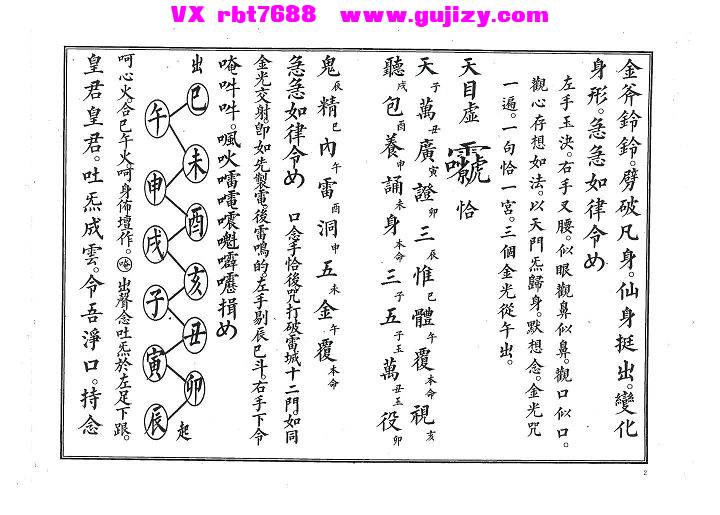 VX rbt7688 www.gujizy.com
金斧鈴鈴。劈破凡身。仙身挺出。變化
身形。急急如律令め
左手玉決。右手叉腰。似眼觀鼻似鼻。觀口似口。
觀心存想如法。以天門炁歸身。默想念。金光咒
一遍。一句恰一宮。三個金光從午出。
天目虛 恰
天子萬丑廣寅證卯三辰惟巳體午覆本命視亥
聽戌包酉養申誦未身本命三子五子玉萬丑玉役卯
鬼辰精巳內午雷酉洞申五未金午覆本命
急急如律令め 口念手恰後咒打破雷城十二門。如同
金光交射。卽如先製雷。後雷鳴的。左手剔辰巳斗。右手下令
唵吽吽。颯吙 揖め
出 巳 未 酉 亥 丑 卯 起
午 申 戌 子 寅 辰
呵心火合巳午火。呵身佈壇作。出聲念吐炁於左足下跟。
皇君皇君。吐炁成雲。令吾淨口。持念
2